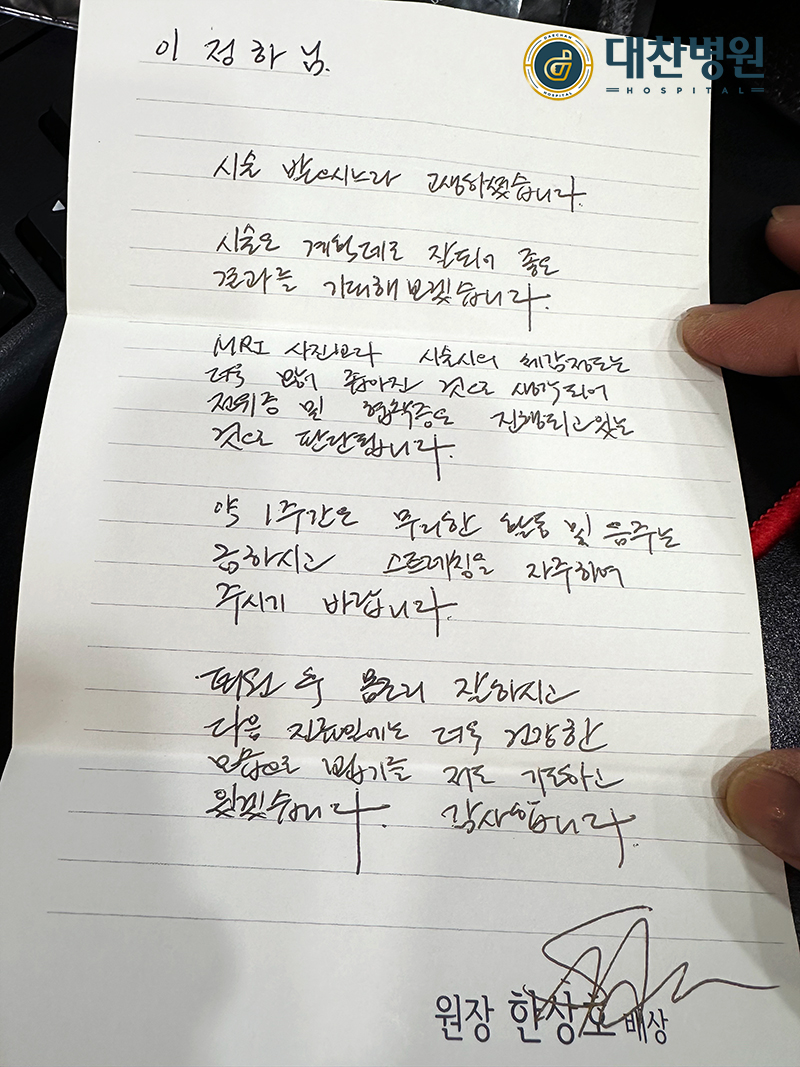 이 정하 님.
DAECHAN HOSPITAL
대찬병원
HOSPITAL
시술 받으시느라 고생하셨습니다.
시술은 계획대로 잘되어 좋은
결과를 기대해 보겠습니다.
MRI 사진보다 시술시의 체감정도는
더욱 많이 좁아진 것으로 생각되어
전위증 및 협착증도 진행되고 있는
것으로 판단됩니다.
약 1주간은 무리한 활동 및 음주는
금하시고 스트레칭을 자주하여
주시기 바랍니다.
퇴원 후 몸관리 잘하시고
다음 진료일에는 더욱 건강한
모습으로 뵙기를 저도 기도하고
있겠습니다. 감사합니다.
원장 한상호 배상